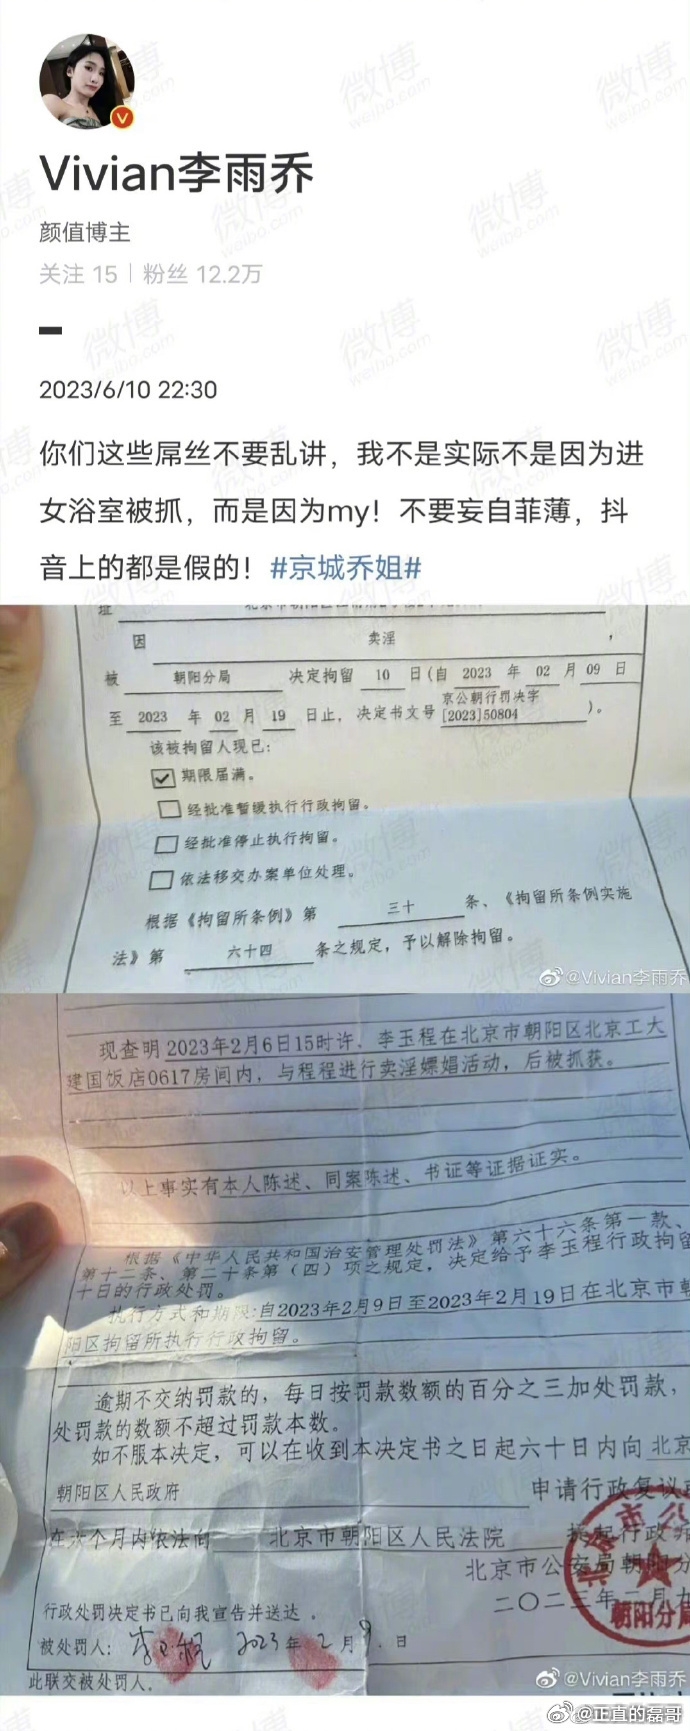 Vivian李雨乔
颜值博主
关注 15 | 粉丝 12.2万
2023/6/10 22:30
你们这些屌丝不要乱讲，我不是实际不是因为进
女浴室被抓，而是因为my！不要妄自菲薄，抖
音上的都是假的！#京城乔姐#
因 卖淫，
被 朝阳分局 决定拘留 10 日(自 2023 年 02 月 09 日
至 2023 年 02 月 19 日止，决定书文号 京公朝行罚决字
[2023]50804 )。
该被拘留人现已：
☑ 期限届满。
□ 经批准暂缓执行行政拘留。
□ 经批准停止执行拘留。
□ 依法移交办案单位处理。
根据《拘留所条例》第 三十 条、《拘留所条例实施
法》第 六十四 条之规定，予以解除拘留。
@Vivian李雨乔
现查明2023年2月6日15时许，李玉程在北京市朝阳区北京工大
建国饭店0617房间内，与程程进行卖淫嫖娼活动，后被抓获。
以上事实有本人陈述、同案陈述、书证等证据证实。
根据《中华人民共和国治安管理处罚法》第六十六条第一款、
第十二条、第二十条第（四）项之规定，决定给予李玉程行政拘留
十日的行政处罚。
执行方式和期限:自2023年2月9日至2023年2月19日在北京市朝
阳区拘留所执行行政拘留。
逾期不交纳罚款的，每日按罚款数额的百分之三加处罚款，
处罚款的数额不超过罚款本数。
如不服本决定，可以在收到本决定书之日起六十日内向 北京
朝阳区人民政府 申请行政复议
在六个月内依法向 北京市朝阳区人民法院 提起行政
北京市公安局朝阳分
二〇二三年二月九
朝阳分局
行政处罚决定书已向我宣告并送达。
被处罚人：李玉程 2023年2月9日
此联交被处罚人。
@Vivian李雨乔
@正直的磊哥